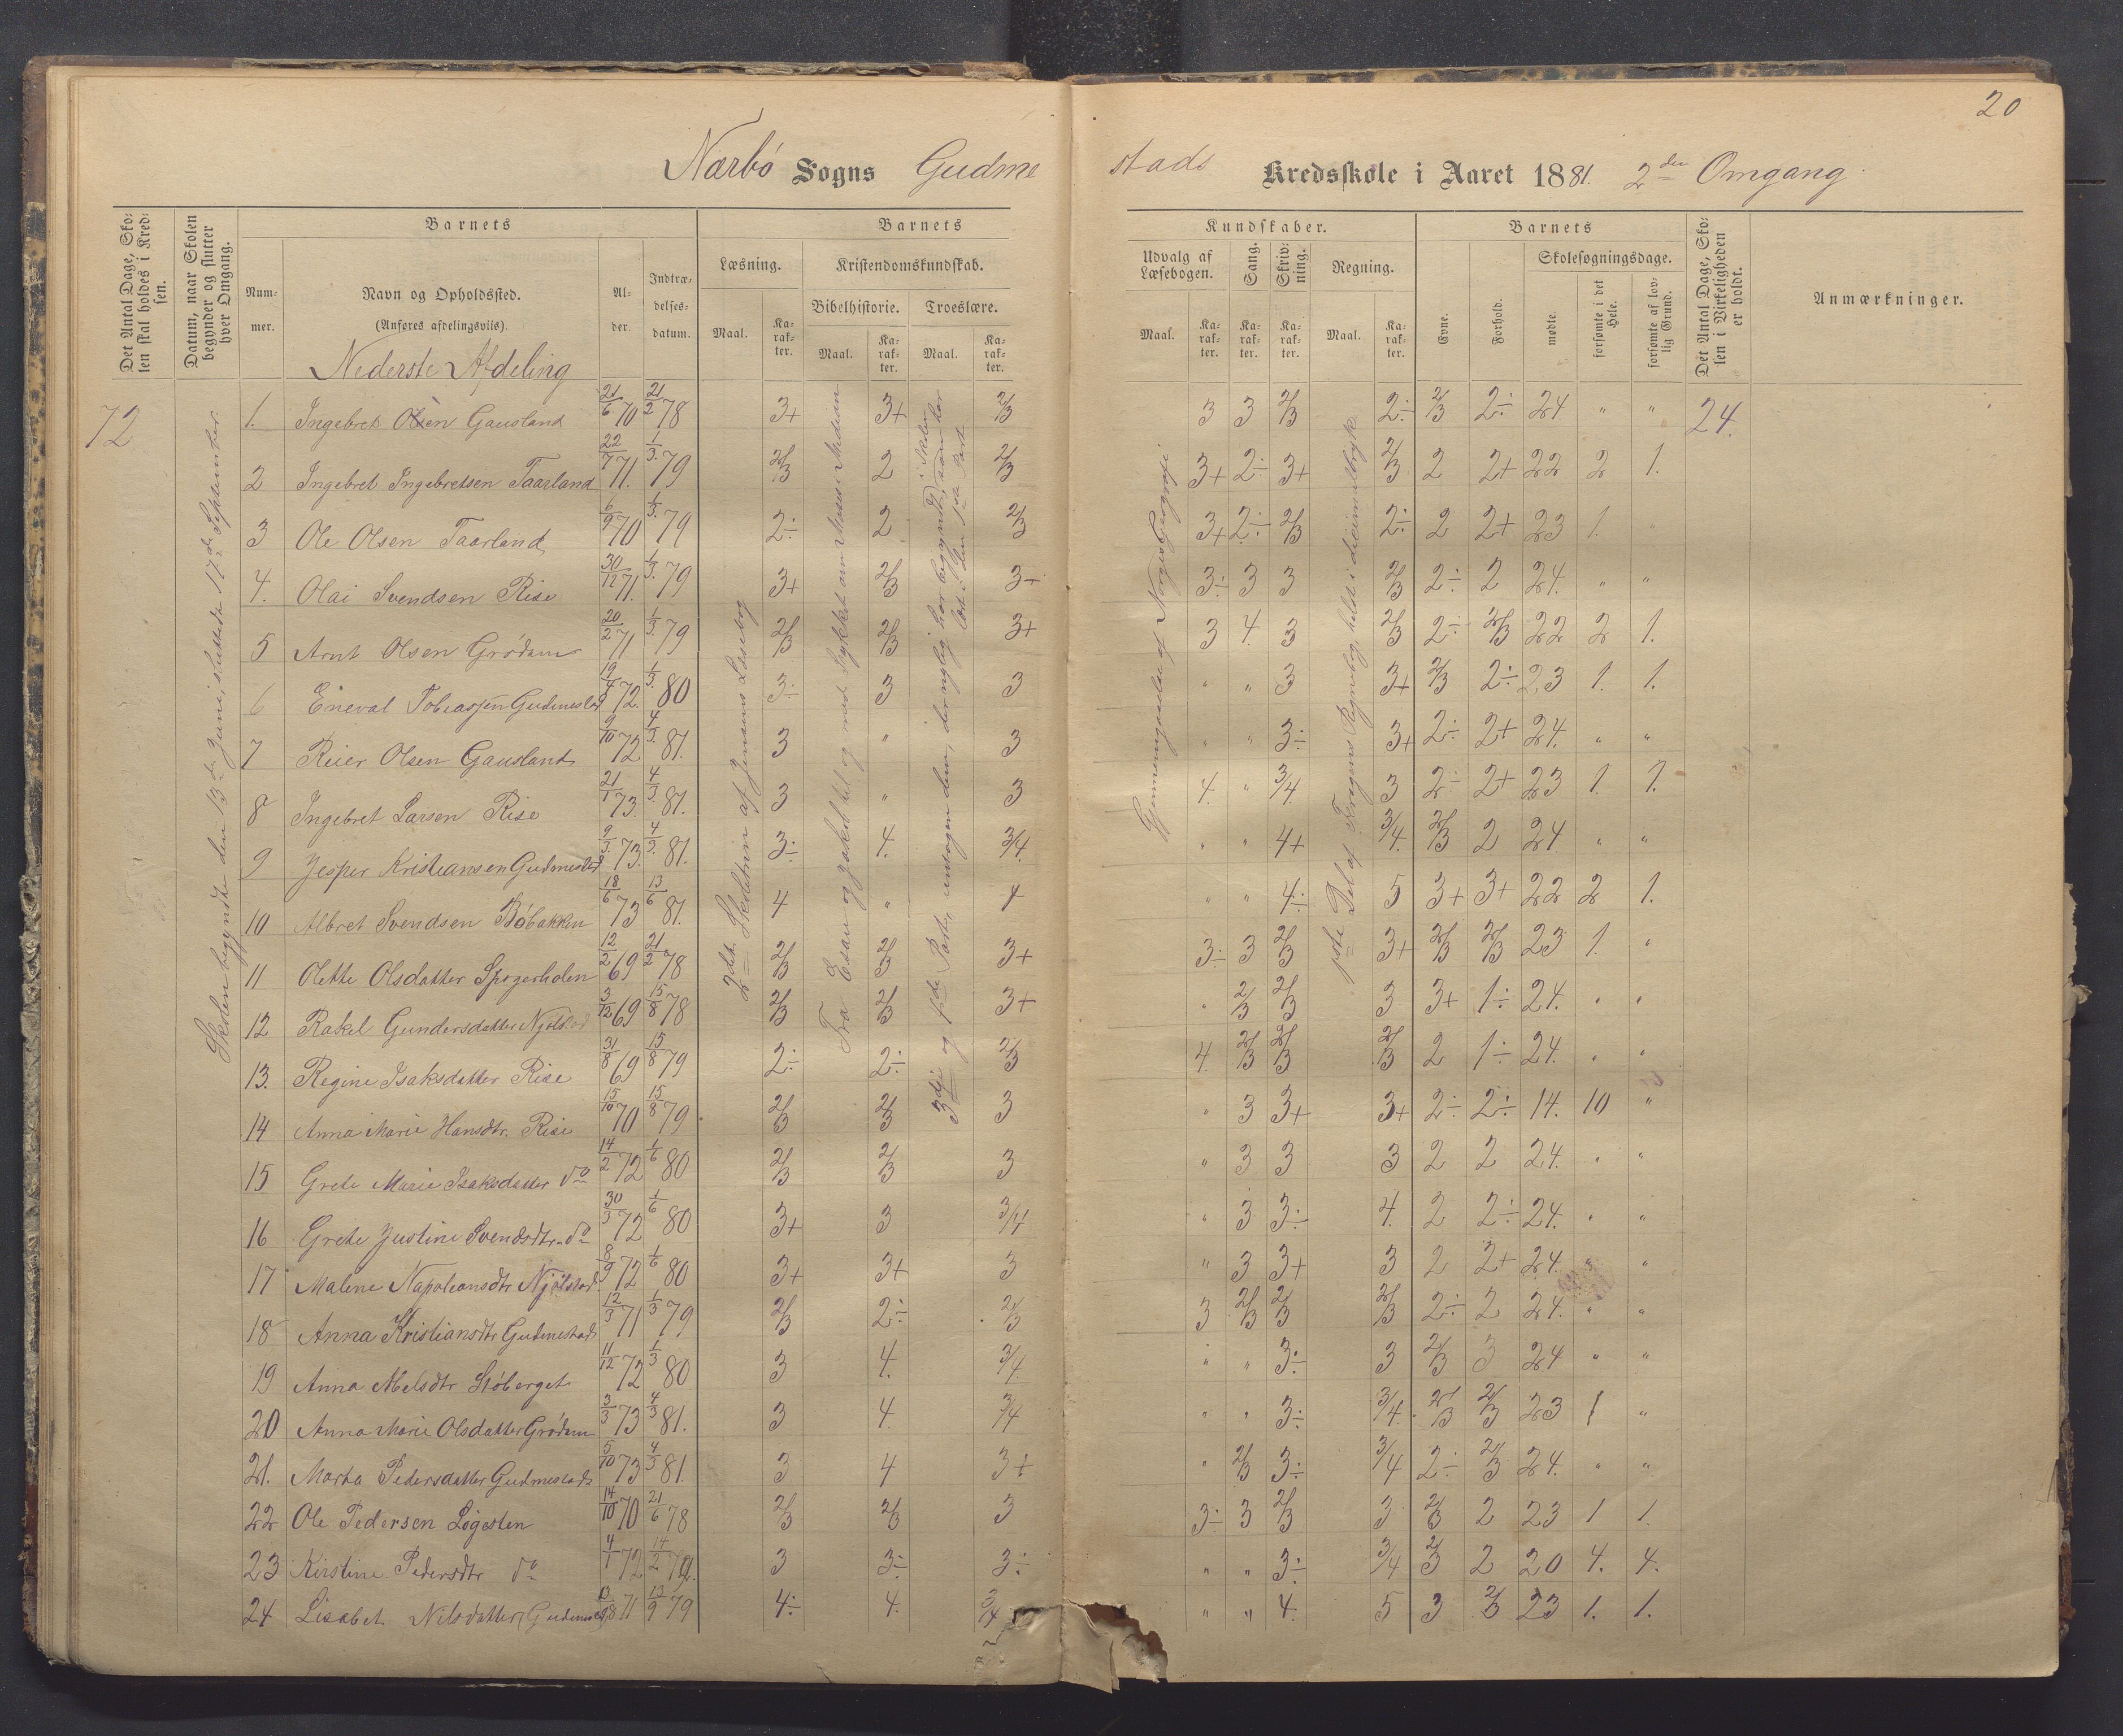 20
Nærbø Sogns Gudme stads Kredsskole i Aaret 1881. 2den Omgang.
Det Antal Dage, Skolen skal holdes i Kredsen.
Datum, naar Skolen begynder og slutter hver Omgang.
Barnets
Nummer.
Navn og Opholdssted.
(Anføres afdelingsviis).
Alder.
Indtrædelsesdatum.
Barnets
Læsning.
Kristendomskundskab.
Bibelhistorie.
Troeslære.
Maal.
Karakter.
Maal.
Karakter.
Maal.
Karakter.
Kundskaber.
Udvalg af Læsebogen.
Sang.
Skrivning.
Regning.
Maal.
Karakter.
Karakter.
Karakter.
Maal.
Karakter.
Barnets
Evne.
Forhold.
Skolesøgningsdage.
mødte.
forsømte i det Hele.
forsømte af lovlig Grund.
Det Antal Dage, Skolen i Virkeligheden er holdt.
Anmærkninger.
Nederste Afdeling
72
Skolen begyndte den 13de Juni, sluttede 17de September.
24.
1. Ingebret Olsen Gausland 21/6 70 21/2 78 3+ 3+ 2/3 3 3 2/3 2÷ 2/3 2÷ 24. " "
2 Ingebret Ingebretsen Taarland 22/7 71. 1/3. 79 2/3 2 2/3 3+ 2÷ 3+ 2/3 2 2+ 22 2 1.
3 Ole Olsen Taarland 6/9 70 1/3. 79 2÷ 2 2/3 3+ 2÷ 2/3 2÷ 2 2+ 23 1. "
4. Olai Svendsen Rise 30/12 71. 1/3. 79 3+ 2/3 3÷ 3÷ 3 3 2/3 2÷ 2 24. " "
5 Arnt Olsen Grødum 20/2 71 1/3 79 2/3 2/3 3+ 3 4. 3 2/3 2÷ 2/3 22 2 1.
6 Eneval Tobiassen Gudmestad 19/4 72. 1/3. 80 3÷ 3 3 " " 3 3+ 2/3 2÷ 23 1. 1.
7 Reier Olsen Gausland 9/10 72. 4/3. 81. 3 " 3 " " 3÷ 3+ 2÷ 2+ 24. " "
8 Ingebret Larsen Rise 21/1 73. 4/3 81. 3 " 3 4. " 3/4. 3 2÷ 2+ 23 1. 1.
9 Jesper Kristiansen Gudmestad 9/3 73. 4/3. 81. 3÷ 4. 3/4. " " 4+ 3/4. 2/3 2 24 " "
10 Albret Svendsen Bøbakken 18/6 73 13/6 81. 4 " 4 " " 4÷ 5 3+ 3+ 22 2 1.
11 Olette Olsdatter 12/2 69 21/2 78 2/3 2/3 3+ 3÷ 3 2/3 3+ 2/3 2/3 23 1. "
12 Rakel Gundersdatter Njølstad 3/12 69 15/8 78 2/3 2/3 3+ " 2/3 2/3 3 3+ 1÷ 24. " "
13. Regine Isaksdatter Rise 31/8 69 15/8 79 2÷ 2÷ 2/3 4. 2/3 2/3 2/3 2 1÷ 24. " "
14 Anna Marie Hansdtr. Rise 15/10 70 15/8 79. 2/3 2/3 3 " 3 3+ 3+ 2÷ 2÷ 14. 10 "
15 Grete Marie Isaksdatter do 14/2 72 1/6 80 2/3 2/3 3 " 3 3 3 2 2 24. " "
16 Grete Justine Svendsdtr. do 30/3 72 1/6 80 3+ 3 3/4 " 3 3÷ 4. 2 2÷ 24. " "
17 Malene Napoleonsdtr Njølstad 8/9 72 1/6 80 3+ 3+ 3 " 3 3+ 3 2 2+ 24. " "
18 Anna Kristiansdtr Gudmestad 12/3 71 1/3 79 2/3 2÷ 2/3 3 2/3 2/3 2/3 2÷ 2 24. " "
19 Anna Abelsdtr Støberget 11/12 72 1/3 80 3 4. 3/4 " " 3÷ 3 2/3 3 24 " "
20 Anna Marie Olsdatter Grødum 3/3 73 4/3 81. 3 4. 3/4 " " 3÷ 3/4. 2/3 2/3 23 1 "
21. Marta Pedersdatter Gudmestad 5/10 73 4/3 81. 3 4 3+ " 2/3 3÷ 3/4 2÷ 2/3 24. " "
22 Ole Pedersen Løgesten 14/10 70 21/6 78 2/3 2/3 3 3÷ 3 2/3 3 2/3 2 23 1 1.
23 Kirstine Pedersdtr do 4/1 72 14/2 79. 3 3÷ 3÷ " " 3÷ 3/4 2/3 2 20 4. 4.
24 Lisabet Nilsdatter 71 13/9 79 4÷ 4. 3/4 " " 4. 5 3 2/3 23 1. 1.
2det Skoletrin af Jensens Læsebog
Fra Esau og Jakob til og med Stykket om Moses i Midian
Gjennemgaaelse af Norges Geografi
1ste Del af